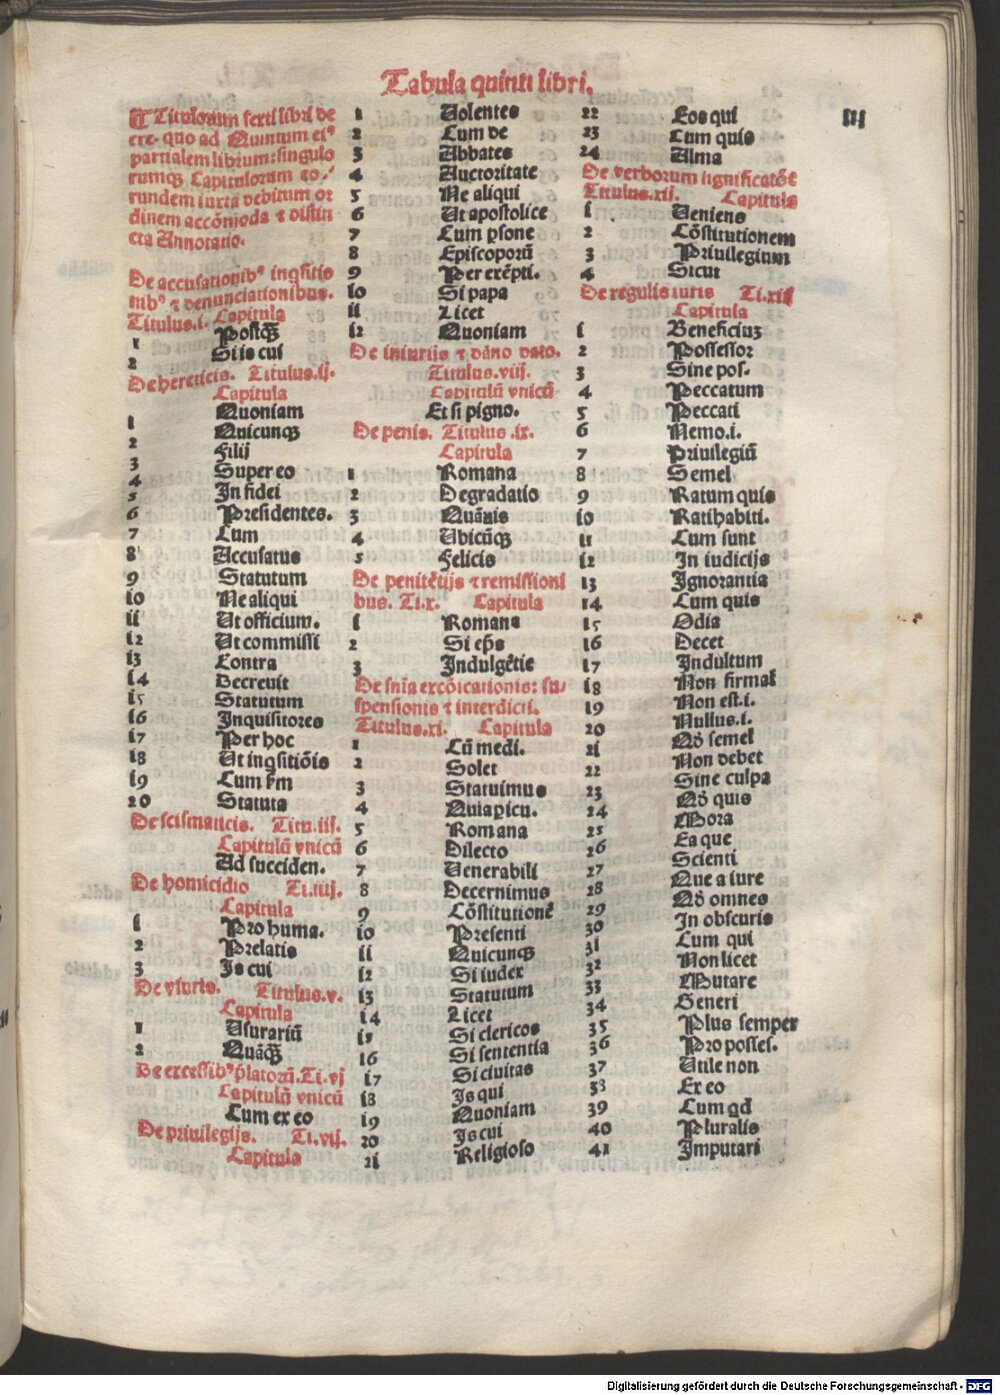 Tabula quinti libri.
III
¶ Titulorum sexti libri de
cre. quo ad Quintum eiꝰ
partialem librum: singulo
rumqꝫ Capitulorum eo⸗
rundem iuxta debitum or
dinem accōmoda ⁊ distin
cta Annotatio.
De accusationibꝰ inqſitio
nibꝰ ⁊ denunciationibus.
Titulus.i. Capitula
1 Postqꝫ̄
2 Si is cui
De hereticis. Titulus.ij.
Capitula
1 Quoniam
2 Quicunqꝫ
3 Filij
4 Super eo
5 In fidei
6 Presidentes.
7 Cum
8 Accusatus
9 Statutum
10 Ne aliqui
11 Ut officium.
12 Ut commissi
13 Contra
14 Decreuit
15 Statutum
16 Inquisitores
17 Per hoc
18 Ut inqſitiōis
19 Cum fm̄
20 Statuta
De scismaticis. Titu.iij.
Capitulū vnicū
Ad succiden.
De homicidio Ti.iiij.
Capitula
1 Pro huma.
2 Prelatis
3 Is cui
De vsuris. Titulus.v.
Capitula
1 Usurariū
2 Quāqꝫ̄
De excessibꝰ p̄latorū. Ti.vj
Capitulū vnicū
Cum ex eo
De priuilegijs. Ti.vij.
Capitula
1 Uolentes
2 Cum de
3 Abbates
4 Auctoritate
5 Ne aliqui
6 Ut apostolice
7 Cum ꝑsone
8 Episcoporū
9 Per exēpti.
10 Si papa
11 Licet
12 Quoniam
De iniurijs ⁊ dāno dato.
Titulus.viij.
Capitulū vnicū
Et si pigno.
De penis. Titulus.ix.
Capitula
1 Romana
2 Degradatio
3 Quāuis
4 Ubicūqꝫ
5 Felicis
De penitētijs ⁊ remissioni
bus. Ti.x. Capitula
1 Romana
2 Si ep̄s
3 Indulgētie
De snīa excōicationis: su⸗
spensionis ⁊ interdicti.
Titulus.xi. Capitula
1 Cū medi.
2 Solet
3 Statuimus
4 Quia ꝑicu.
5 Romana
6 Dilecto
7 Uenerabili
8 Decernimus
9 Cōstitutionē
10 Presenti
11 Quicunqꝫ
12 Si iudex
13 Statutum
14 Licet
15 Si clericos
16 Si sententia
17 Si ciuitas
18 Is qui
19 Quoniam
20 Is cui
21 Religioso
22 Eos qui
23 Cum quis
24 Alma
De verborum significatōe
Titulus.xij. Capitula
1 Ueniens
2 Cōstitutionem
3 Priuilegium
4 Sicut
De regulis iuris Ti.xiij
Capitula
1 Beneficiuꝫ
2 Possessor
3 Sine pos.
4 Peccatum
5 Peccati
6 Nemo.i.
7 Priuilegiū
8 Semel
9 Ratum quis
10 Ratihabiti.
11 Cum sunt
12 In iudicijs
13 Ignorantia
14 Cum quis
15 Odia
16 Decet
17 Indultum
18 Non firmat
19 Non est.i.
20 Nullus.i.
21 Qꝺ semel
22 Non debet
23 Sine culpa
24 Qꝺ quis
25 Mora
26 Ea que
27 Scienti
28 Que a iure
29 Qꝺ omnes
30 In obscuris
31 Cum qui
32 Non licet
33 Mutare
34 Generi
35 Plus semper
36 Pro posses.
37 Utile non
38 Ex eo
39 Cum qꝺ
40 Pluralis
41 Imputari
Digitalisierung gefördert durch die Deutsche Forschungsgemeinschaft - DFG